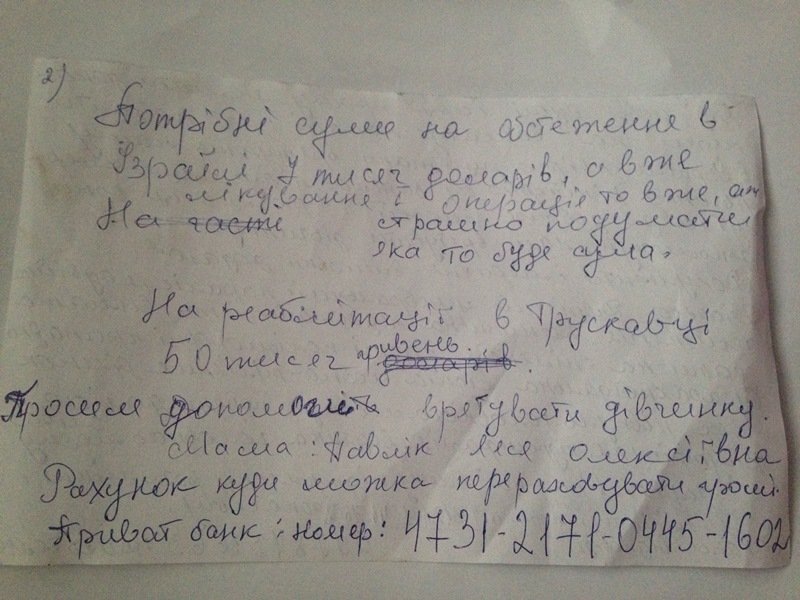 2)
Потрібні суми на обстеження в
Ізраїлі 7 тисяч доларів, а вже
лікування і операція то вже, аж
На части страшно подумати
яка то буде сума.
На реабілітації в Трускавці
50 тисяч гривень.
доларів.
Просим допомогить врятувати дівчинку.
Мама: Павлік Леся Олексіївна
Рахунок куди можна перераховувати гроші.
Приват банк: номер: 4731-2171-0445-1602